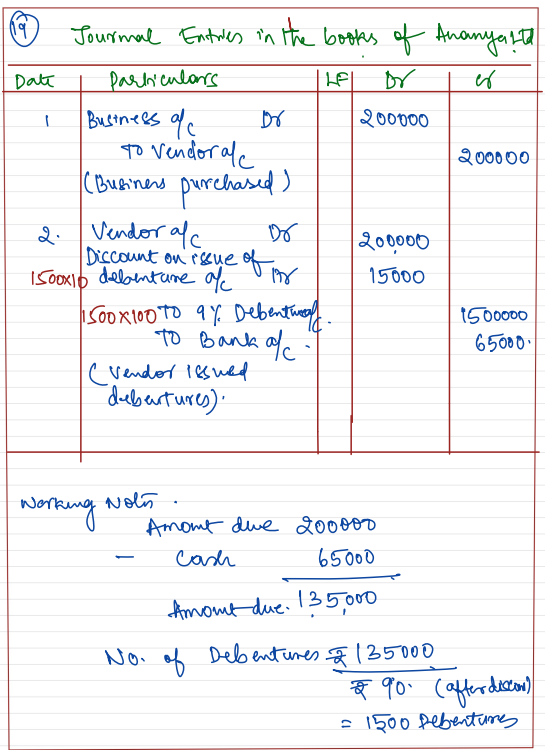 19 Journal Entries in the books of Ananya Ltd
Date Particulars LF Dr Cr
1 Business a/c Dr 200000
To Vendor a/c 200000
(Business purchased)
2. Vendor a/c Dr 200,000
Discount on issue of
1500×10 debenture a/c Dr 15000
1500×100 To 9% Debenture a/c. 1500000
To Bank a/c. 65000.
(Vendor issued
debentures).
Working Notes.
Amount due 200000
- Cash 65000
Amount due. 135,000
No. of Debentures ₹ 135000
₹ 90. (after discon)
= 1500 Debentures